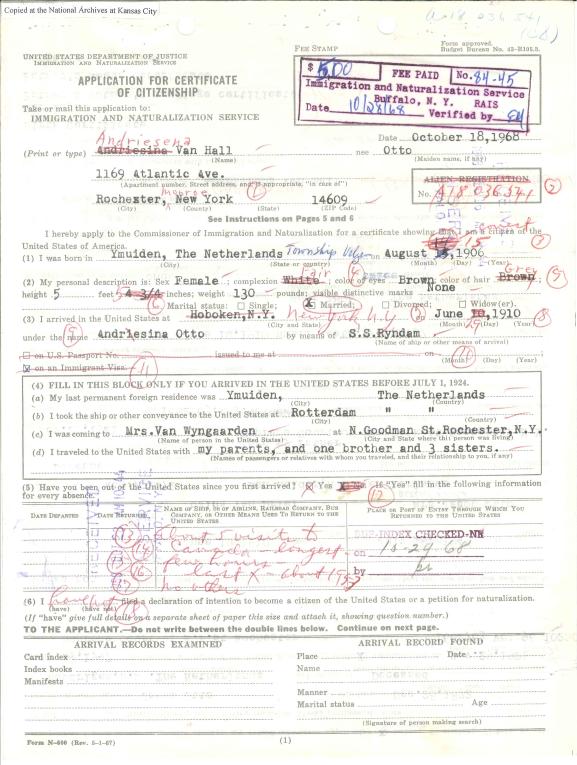 Copied at the National Archives at Kansas City
A-18 036 541
UNITED STATES DEPARTMENT OF JUSTICE
IMMIGRATION AND NATURALIZATION SERVICE
FEE STAMP
Form approved.
Budget Bureau No. 43-R105.3.
APPLICATION FOR CERTIFICATE
OF CITIZENSHIP
$ 5.00 FEE PAID No. 84-45
Immigration and Naturalization Service
Buffalo, N. Y. RAIS
Date 10/28/68 Verified by
Take or mail this application to:
IMMIGRATION AND NATURALIZATION SERVICE
Date October 18, 1968
Andriesena
(Print or type) Andriesina Van Hall nee Otto
(Name) (Maiden name, if any)
1169 Atlantic Ave.
(Apartment number, Street address, and, if appropriate, "in care of")
ALIEN REGISTRATION
No. A18 036 541
Monroe
Rochester, New York 14609
(City) (County) (State) (ZIP Code)
See Instructions on Pages 5 and 6
I hereby apply to the Commissioner of Immigration and Naturalization for a certificate showing that I am a citizen of the
United States of America.
15
(1) I was born in Ymuiden, The Netherlands Township on August 1906
(City) (State or country) (Month) (Day) (Year)
Fair Grey
(2) My personal description is: Sex Female; complexion White; color of eyes Brown; color of hair Brown;
height 5 feet 4 3/4 inches; weight 130 pounds; visible distinctive marks None
Marital status: Single; X Married; Divorced; Widow(er).
(3) I arrived in the United States at Hoboken, N.Y. New York N.Y. on June 10, 1910
(City and State) (Month) (Day) (Year)
under the name Andriesina Otto by means of S.S. Ryndam
(Name of ship or other means of arrival)
on U.S. Passport No. issued to me at on
(Month) (Day) (Year)
on an Immigrant Visa.
(4) FILL IN THIS BLOCK ONLY IF YOU ARRIVED IN THE UNITED STATES BEFORE JULY 1, 1924.
(a) My last permanent foreign residence was Ymuiden, The Netherlands
(City) (Country)
(b) I took the ship or other conveyance to the United States at Rotterdam " "
(City) (Country)
(c) I was coming to Mrs. Van Wyngaarden at N. Goodman St. Rochester, N.Y.
(Name of person in the United States) (City and State where this person was living)
(d) I traveled to the United States with my parents, and one brother and 3 sisters.
(Names of passengers or relatives with whom you traveled, and their relationship to you, if any)
(5) Have you been out of the United States since you first arrived? Yes No If "Yes" fill in the following information
for every absence.
DATE DEPARTED
DATE RETURNED
NAME OF SHIP, OR OF AIRLINE, RAILROAD COMPANY, BUS
COMPANY, OR OTHER MEANS USED TO RETURN TO THE
UNITED STATES
PLACE OR PORT OF ENTRY THROUGH WHICH YOU
RETURNED TO THE UNITED STATES
about 5 visits to
Canada - longest
few hours
last X - about 1953
no others
INDEX CHECKED-NW
on 10-29-68
by
(6) I have not filed a declaration of intention to become a citizen of the United States or a petition for naturalization.
(have) (have not)
(If "have" give full details on a separate sheet of paper this size and attach it, showing question number.)
TO THE APPLICANT.—Do not write between the double lines below. Continue on next page.
ARRIVAL RECORDS EXAMINED
ARRIVAL RECORD FOUND
Card index
Index books
Manifests
Place Date
Name
Manner
Marital status Age
(Signature of person making search)
Form N-600 (Rev. 5-1-67)
(1)